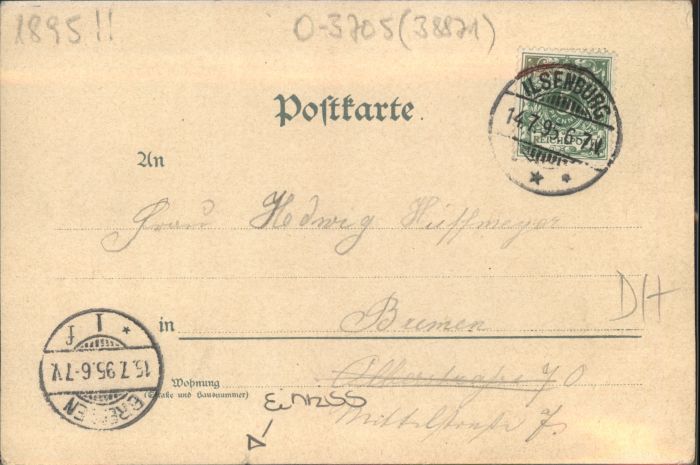 1895!!
O-3705(38871)
ILSENBURG
14.7.95.6-7V.
REICHSPOST
Postkarte.
An
Frau Hedwig Hüffmeyer
D/+
in Bremen
BREMEN
15.7.95.6-7V.
1 f
Wohnung
(Straße und Hausnummer)
70
Mittelstraße 7.